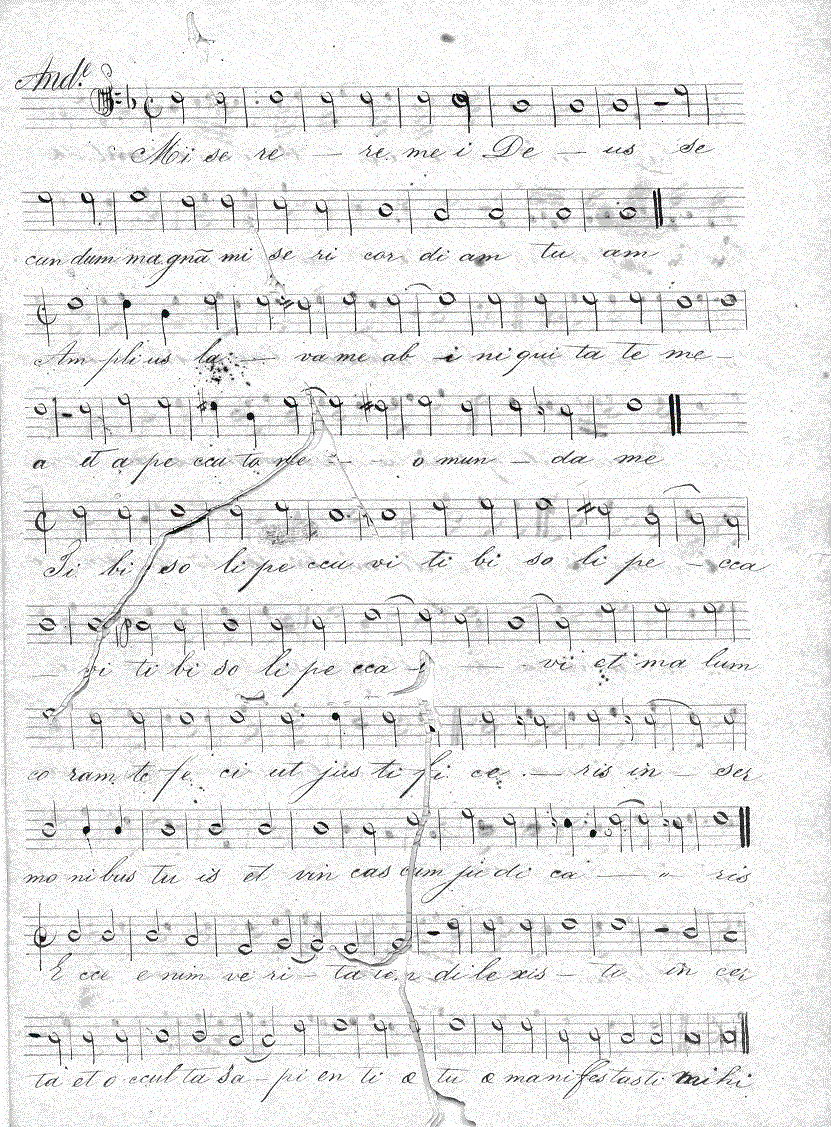 And.e
Mi se re — re. me i De — us se
cun dum ma gnã mi se ri cor di am tu am
Am pli us la — va me ab i ni qui ta te me —
a et a pe cca to me - - - o mun — da me
Ti bi so li pe cca vi ti bi so li pe — cca
vi ti bi so li pe cca - — vi et ma lum
co ram te fe ci ut jus ti fi ce. — ris in — ser
mo ni bus tu is et vin cas cum ju di ca — — " ris
E cce e nim ve ri — ta te. di le xis — ti in cer
ta et o ccul ta Sa — pi en ti æ tu æ mani festasti mihi